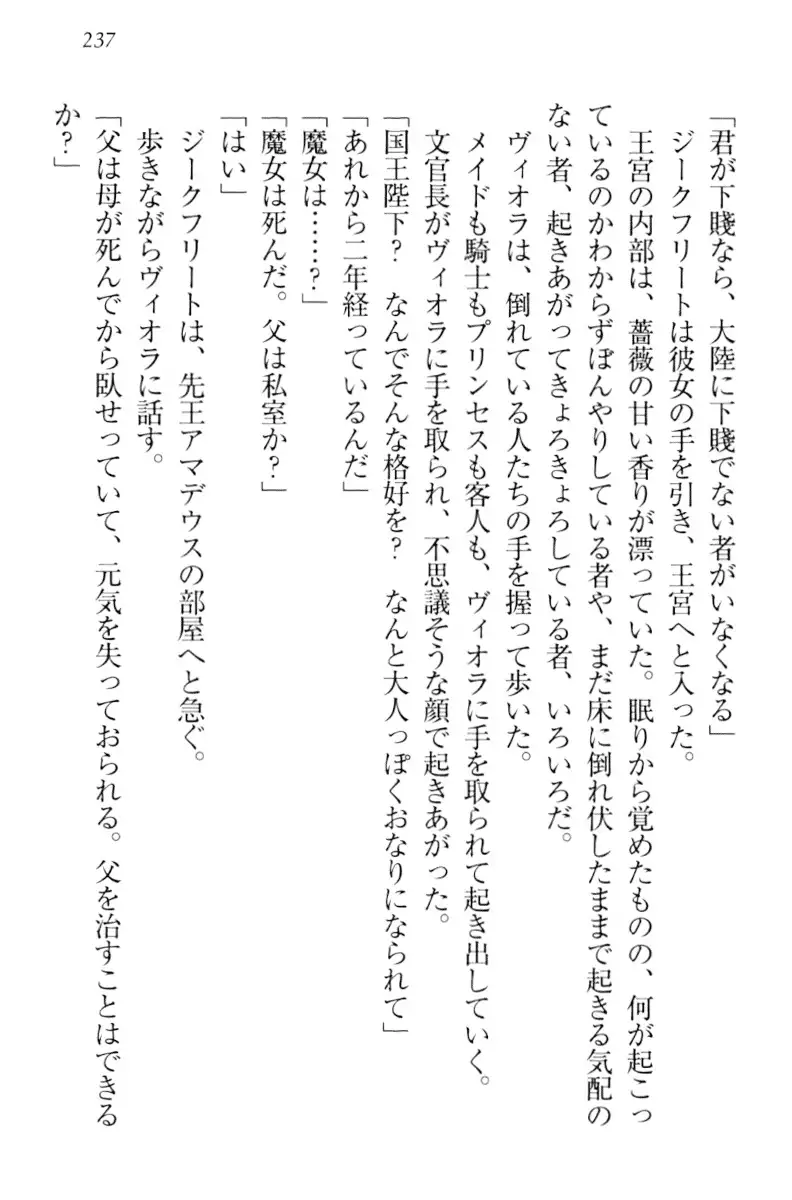 237
「君が下賤なら、大陸に下賤でない者がいなくなる」
ジークフリートは彼女の手を引き、王宮へと入った。
王宮の内部は、薔薇の甘い香りが漂っていた。眠りから覚めたものの、何が起こっ
ているのかわからずぼんやりしている者や、まだ床に倒れ伏したままで起きる気配の
ない者、起きあがってきょろきょろしている者、いろいろだ。
ヴィオラは、倒れている人たちの手を握って歩いた。
メイドも騎士もプリンセスも客人も、ヴィオラに手を取られて起き出していく。
文官長がヴィオラに手を取られ、不思議そうな顔で起きあがった。
「国王陛下？　なんでそんな格好を？　なんと大人っぽくおなりになられて」
「あれから二年経っているんだ」
「魔女は……？」
「魔女は死んだ。父は私室か？」
「はい」
ジークフリートは、先王アマデウスの部屋へと急ぐ。
歩きながらヴィオラに話す。
「父は母が死んでから臥せっていて、元気を失っておられる。父を治すことはできる
か？」